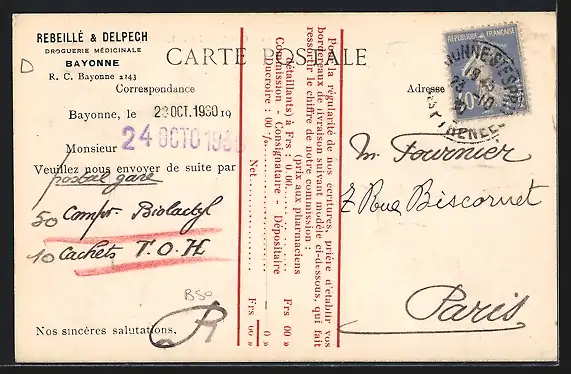 REBEILLÉ & DELPECH
DROGUERIE MÉDICINALE
BAYONNE
R. C. Bayonne 2143
CARTE POSTALE
Correspondance
Adresse
Bayonne, le 23 OCT. 1930 19
24 OCTO 1930
Monsieur
Veuillez nous envoyer de suite par
postal gare
50 Compr. Biolactyl
10 Cachets T.O.H
B50
Nos sincères salutations,
R
Pour la régularité de nos ecritures, prière d'établir vos
bordereaux de livraison suivant modèle ci-dessous, qui fait
ressortir le chiffre de notre commission :
(prix aux pharmaciens
détaillants) à Frs : 0.00 Frs 00 »
Commission - Consignataire - Dépositaire
Ducroire : 00 % 0 »
Net Frs 00 »
REPUBLIQUE FRANÇAISE
40
M. Fournier
7 Rue Biscornet
Paris